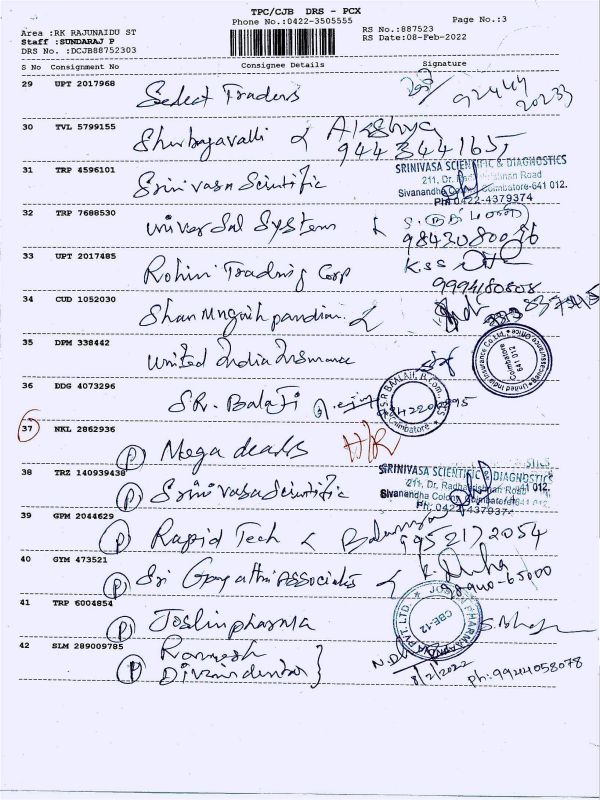 TPC/CJB DRS - PCX
Phone No.:0422-3505555 Page No.:3
Area :RK RAJUNAIDU ST RS No.:887523
Staff :SUNDARAJ P RS Date:08-Feb-2022
DRS No. :DCJB88752303
S No Consignment No Consignee Details Signature
29 UPT 2017968
Select Traders
92444
20233
30 TVL 5799155
Shurbajavalli & Akshya
9443441651
31 TRP 4596101
Srinivasa Scientific
SRINIVASA SCIENTIFIC & DIAGNOSTICS
211, Dr. Radhakrishnan Road
Sivanandha Colony Coimbatore-641 012.
PH: 0422-4379374
32 TRP 7688530
Universal Systems
9843080096
33 UPT 2017485
Rohini Trading Corp K.SS
9994180808
34 CUD 1052030
35 DPM 338442
United India Insurance
United India Insurance Co.Ltd.
Coimbatore
641 012
36 DDG 4073296
S.R. Balaji
S.R BAALAJI, B.Com.,
Coimbatore
37 NKL 2862936
(P) Mega dealers
38 TRZ 140939438
(P) Srinivasa Scientific
SRINIVASA SCIENTIFIC & DIAGNOSTICS
211, Dr. Radhakrishnan Road
Sivanandha Colony Coimbatore-641 012.
PH: 0422-4379374
39 GPM 2044629
(P) Rapid Tech
9952172054
40 GYM 473521
(P) Sri Gayathri Associates
98940-65000
41 TRP 6004854
(P) Joslin pharma
JOSLIN PHARMA INDIA PVT LTD
CBE-12
42 SLM 289009785
(P) Ramesh
8/2/2022
Ph: 9944058078